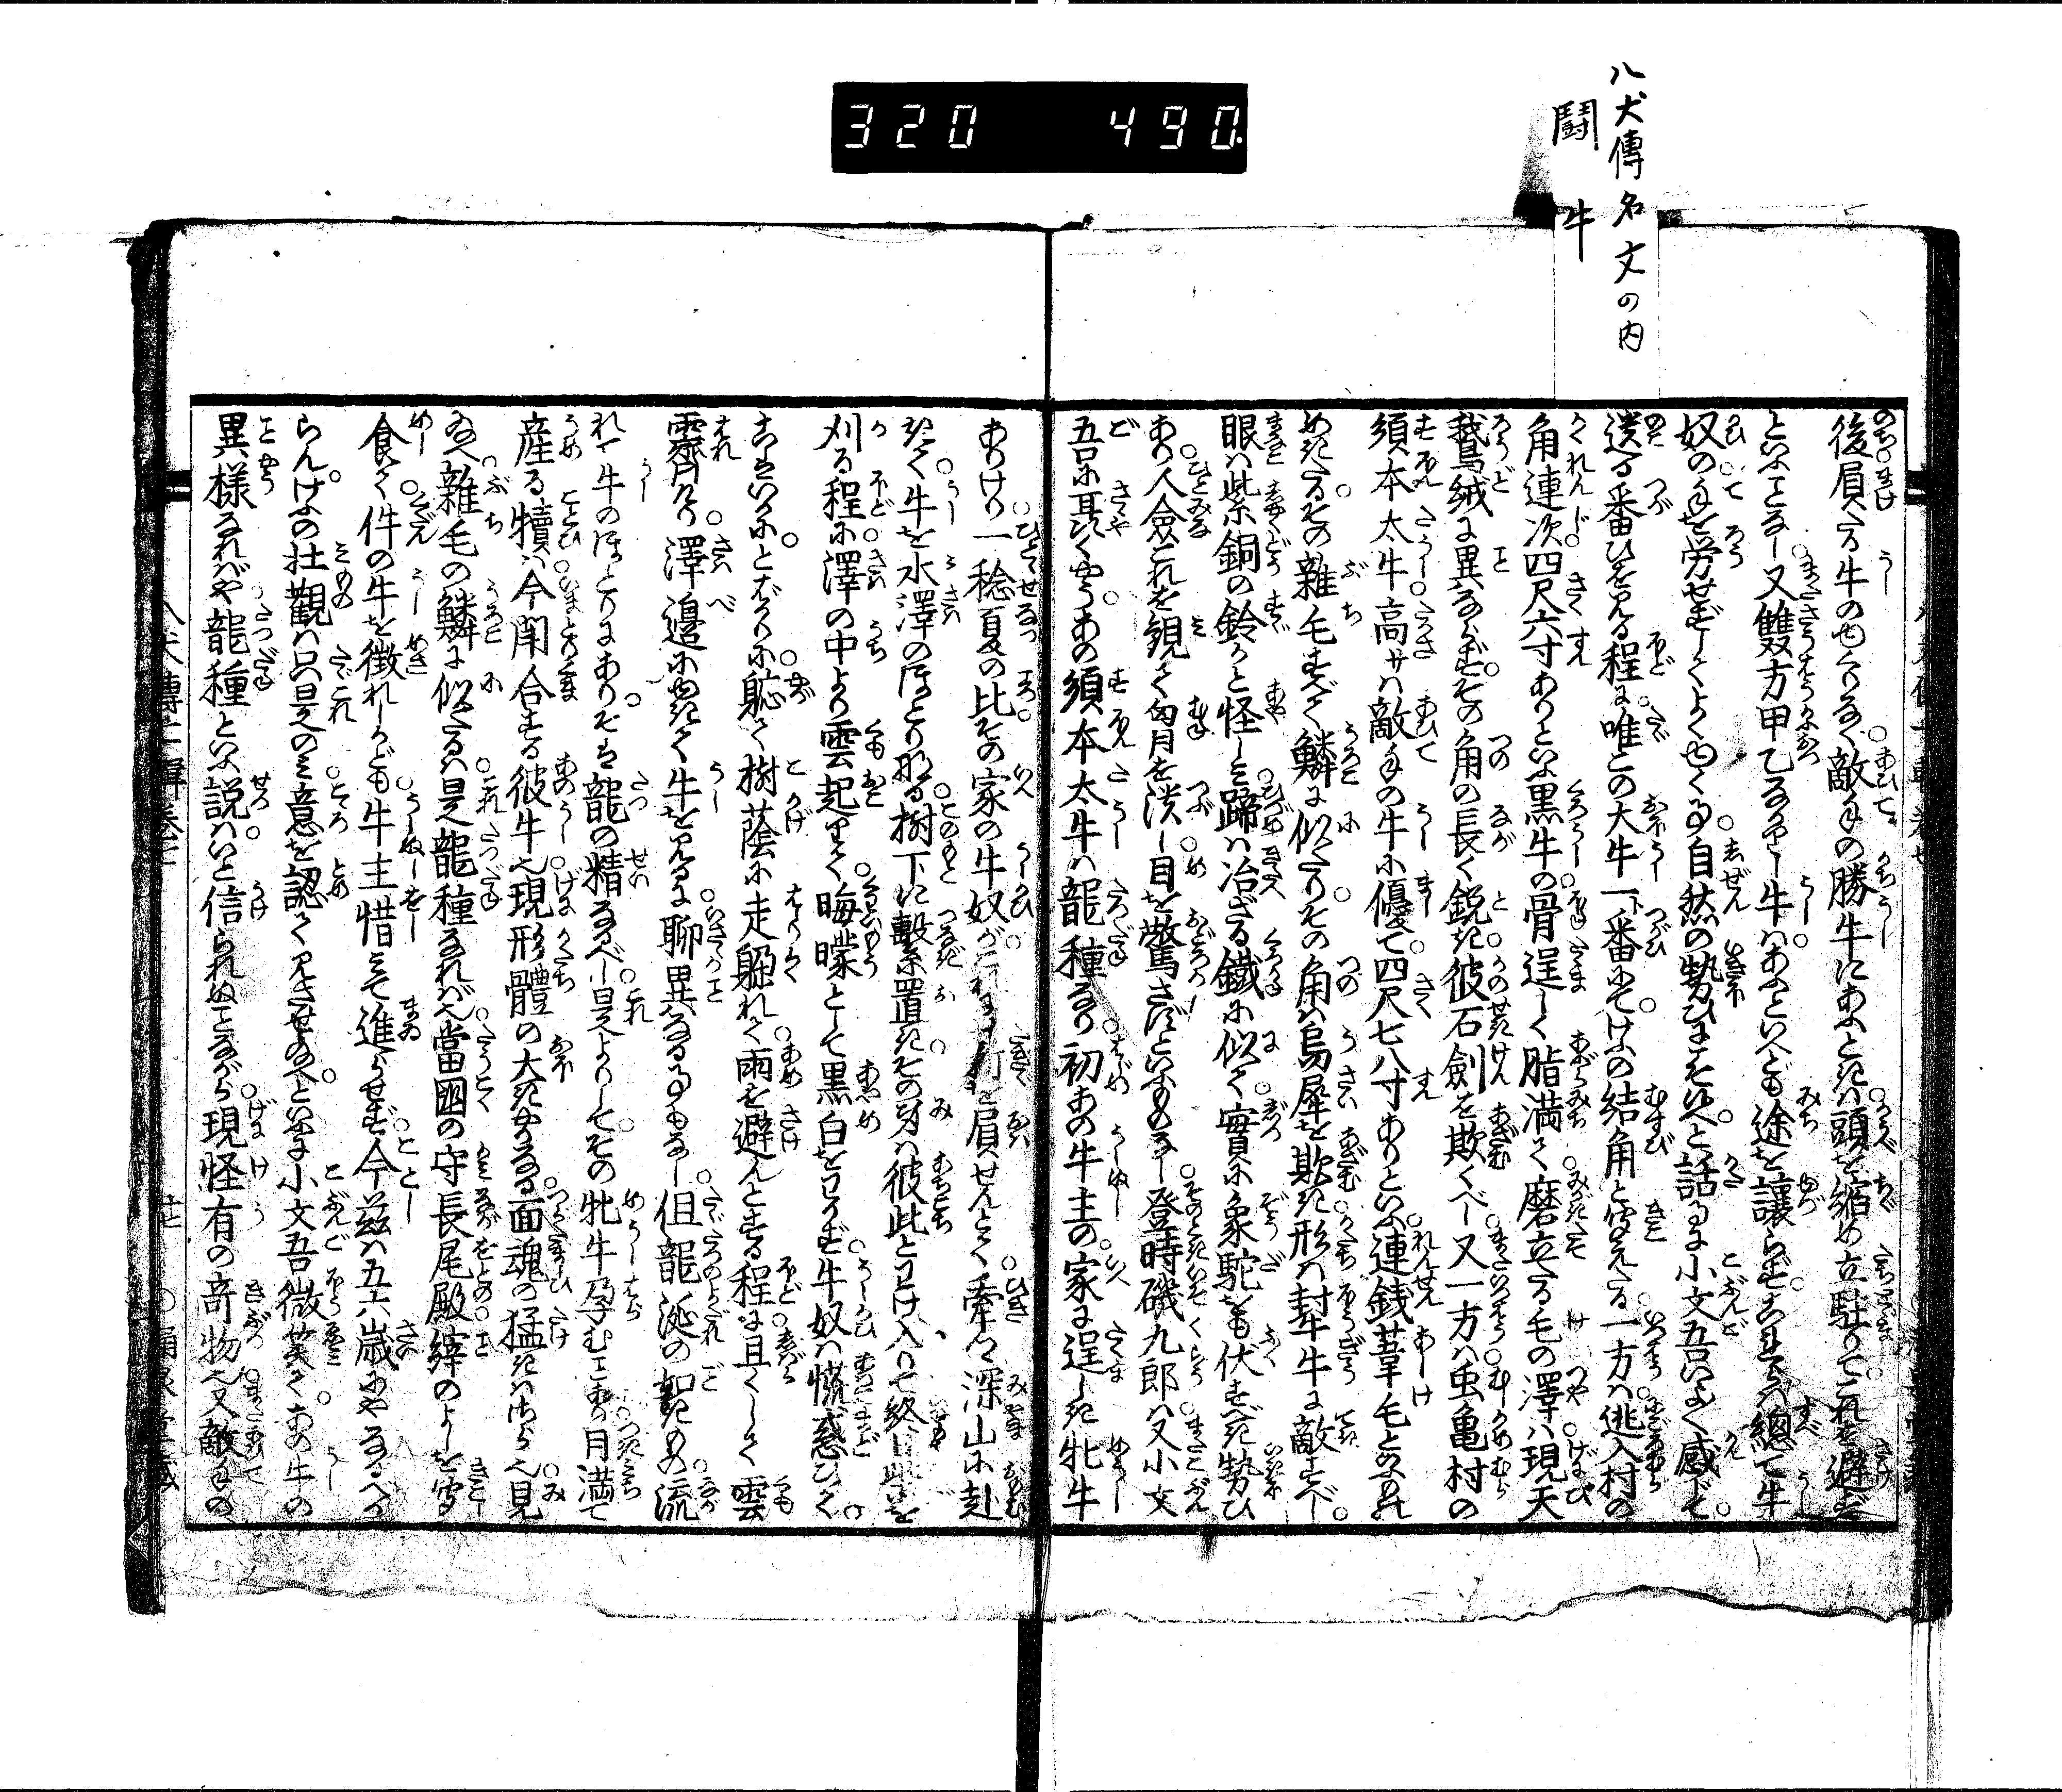 320 490
八犬傳名文の内
鬪牛
後屓たる牛のせんかたなく敵手の勝牛にあふときは頭を縮め立駐りてこれを避ざ
といふことなし又雙方甲乙なき牛はあふといへども途を讓らずこれらは總て牛
奴の手を労せずしてよくせる自然の勢ひにこそ候へと話るに小文吾いよ〳〵感じて
遺る番ひを見る程に唯この大牛一下番にてけふの結角と聞えたる一方は逃入村の
角連次四尺六寸ありといふ黒牛の骨逞しく脂満て磨立たる毛の澤は現天
鵞絨に異ならずその角の長く鋭き彼石劍を欺くべし又一方は虫亀村の
須本太牛高サは敵手の牛に優て四尺七八寸ありといふ連銭葦毛といふめれ
めきたるその雜毛すべて鱗に似たりその角は烏犀を欺き形は封牛に敵すべし
眼は紫銅の鈴かと怪しみ蹄は冶ざる鐵に似て實に象駝をも伏すべき勢ひ
あり人僉これを覩て匈月を潰し目を驚さずといふものなし登時磯九郎は又小文
吾に耳語くやうあの須本太牛は龍種なり初あの牛主の家に逞しき牝牛
ありけり一稔夏の比その家の牛奴が屓せんとて牽て深山に赴
きて牛を水澤のほとりなる樹下に繋置きその身は彼此とわけ入りて終日柴を
刈る程に澤の中より雲起りて晦曚として黒白をわかず牛奴は慌惑ひて
こはいかにとばかりに躬て樹蔭に走躱れて雨を避んとする程に且くして雲
霽れたり澤邉に出て牛を見るに聊異なることもなし但龍涎の如きもの流
れて牛のほとりにありこは龍の精なるべし是よりしてその牝牛孕むことあり月満て
産る犢は今鬪合する彼牛也現形體の大きやかなる面魂の猛きはさら也見
給へ雜毛の鱗に似たるは是龍種なれば當國の守長尾殿縡のよしを聞
食て件の牛を徴れしかども牛主惜みて進らせず今茲は五六歳にやなるべか
らんけふの壮觀は只是のみ意を認て見させ給へといふに小文吾微笑てあの牛の
異様なればや龍種といふ説はいと信られぬことながら現怪有の奇物也又敵手の